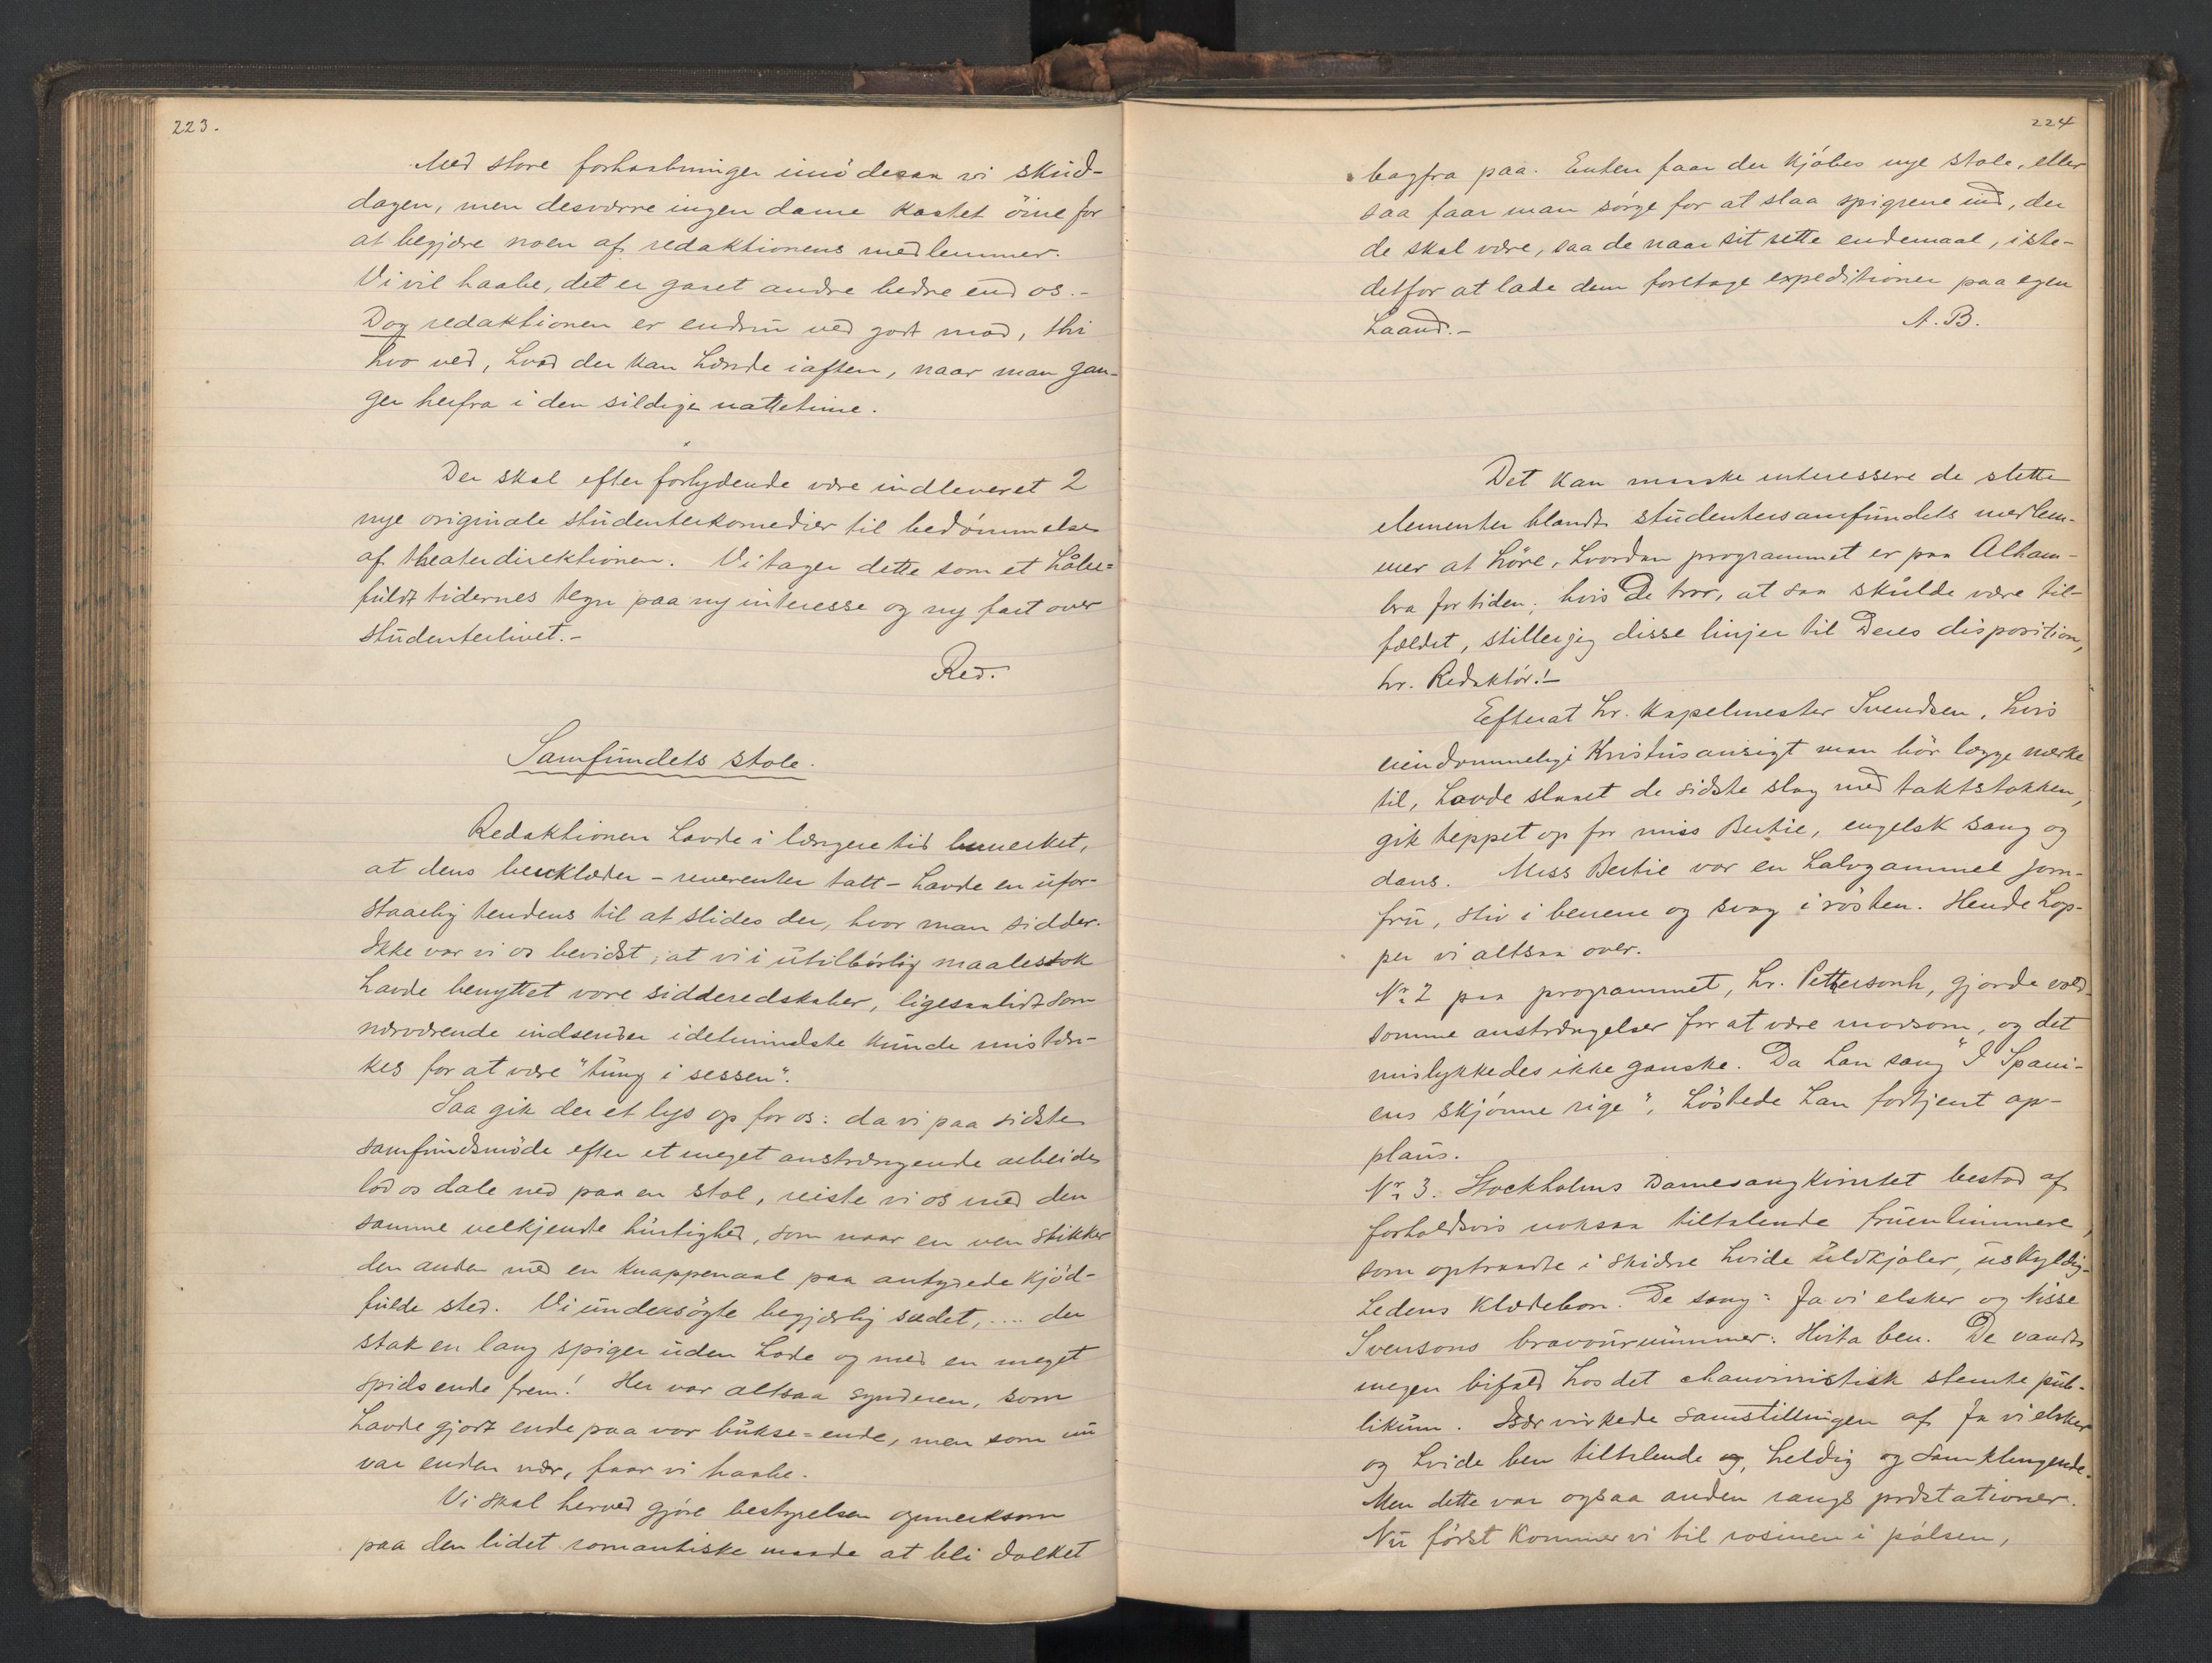 223.
Med store forhaabninger imødesaa vi skud-
dagen, men desværre ingen dame kastet øine for
at begjære noen af redaktionens medlemmer.
Vi vil haabe, det er gaaet andre bedre end os.-
Dog redaktionen er endnu ved godt mod, thi
hvo ved, hvad der kan hænde iaften, naar man gan-
ger herfra i den sildige nattetime.
Der skal efter forlydende være indleveret 2
nye originale studenterkomedier til bedømmelse
af theaterdirektionen. Vi tager dette som et håbe=
fuldt tidernes tegn paa ny interesse og ny fart over
studenterlivet.-
Red.
Samfundets stole.
Redaktionen havde i længere tid bemerket,
at dens benklæder - reverenter talt - havde en ufor-
staaelig tendens til at slides der, hvor man sidder.
Ikke var vi os bevidst, at vi i utilbørlig maalestok
havde benyttet vore sidderedskaber, ligesaalidt som
nærværende indsender idetmindste kunde mistæn-
kes for at være "tung i sessen".
Saa gik der et lys op for os: da vi paa sidste
samfundsmøde efter et meget anstrængende arbeide
lod os dale ned paa en stol, reiste vi os med den
samme velkjendte hurtighed, som naar en ven stikker
den anden med en knappenaal paa antydede kjød-
fulde sted. Vi undersøgte begjærlig sædet, .... der
stak en lang spiger uden hode og med en meget
spids ende frem! Her var altsaa synderen, som
havde gjort ende paa vor bukse=ende, men som nu
var enden nær, faar vi haabe.
Vi skal herved gjøre bestyrelsen opmerksom
paa den lidet romantiske maade at bli dolket
224
bagfra paa. Enten faar der kjøbes nye stole, eller
saa faar man sørge for at slaa spigrene ind, der
de skal være, saa de naar sit rette endemaal, iste-
detfor at lade dem foretage expeditioner paa egen
haand.- A.B.
Det kan maaske interessere de slette
elementer blandt studentersamfundets medlem-
mer at høre, hvordan programmet er paa Alham-
bra for tiden; hvis De tror, at saa skulde være til-
fældet, stiller jeg disse linjer til Deres disposition,
hr. Redaktør!-
Efterat hr. kapelmester Svendsen, hvis
eiendommelige Kristusansigt man bør lægge mærke
til, havde slaaet de sidste slag med taktstokken,
gik teppet op for miss Bertie, engelsk sang og
dans. Miss Bertie var en halvgammel jom-
fru, stiv i benene og svag i røsten. Hende hop-
per vi altsaa over.
Nr. 2 paa programmet, hr. Pettersonh, gjorde vold-
somme anstrængelser for at være morsom, og det
mislykkedes ikke ganske. Da han sang "I Spani-
ens skjønne rige", høstede han fortjent ap-
plaus.
Nr. 3. Stockholms Damesangkvintet bestod af
forholdsvis noksaa tiltalende fruentimmere,
som optraadte i skidne hvide uldkjoler, uskyldig-
hedens klædebon. De sang: Ja vi elsker og Nisse
Svensons bravournummer: Hvita ben. De vandt
megen bifald hos det chauvinistisk stemte pub-
likum. Især virkede samstillingen af Ja vi elsker
og hvide ben tiltalende og, heldig og samklingende.
Men dette var ogsaa anden rangs prestationer.
Nu først kommer vi til rosinen i pølsen,